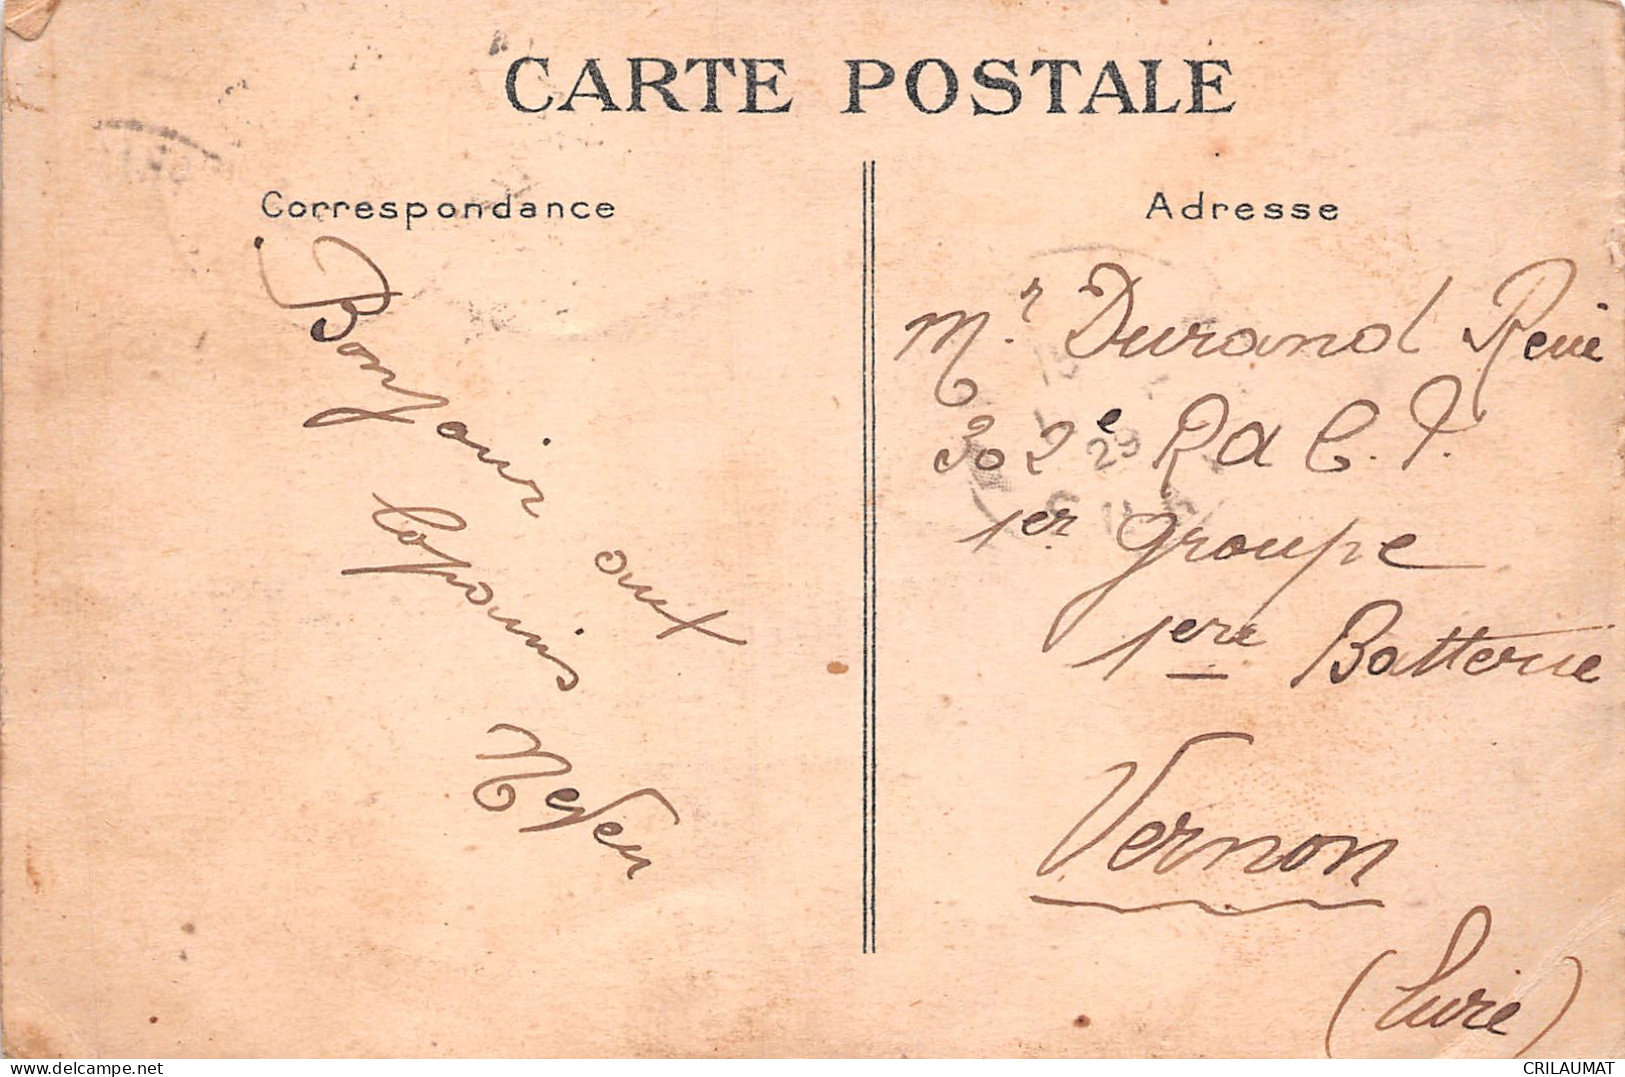 CARTE POSTALE
Correspondance
Bonjour aux
Copains
Neveu
Adresse
Mr. Durand René
302e R a C. P.
1er groupe
1ere Batterie
Vernon
(Eure)
delcampe.net
CRILAUMAT